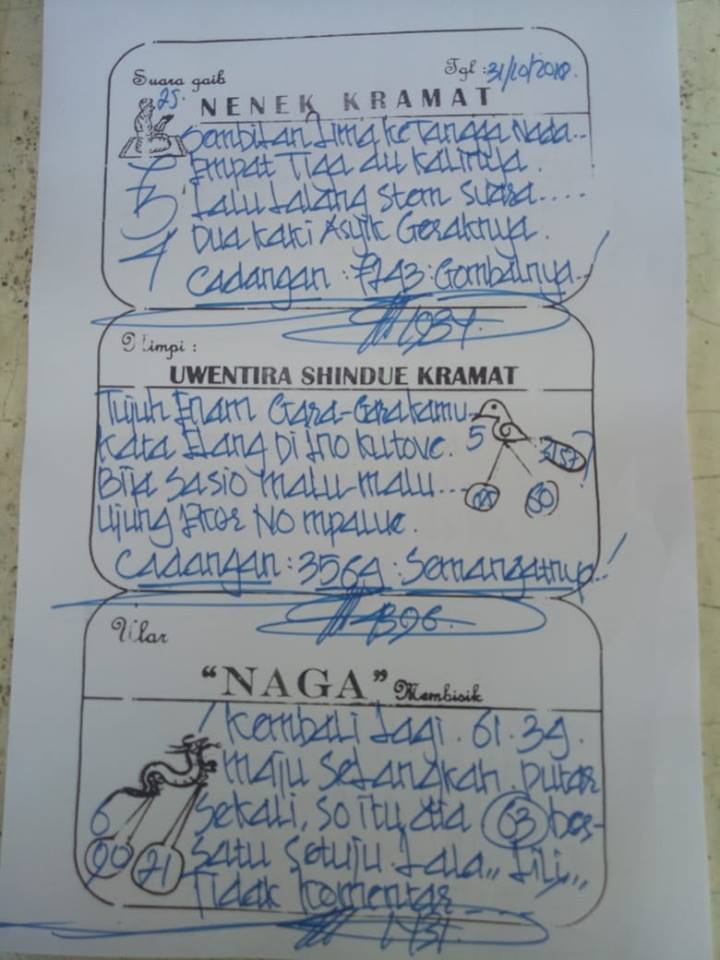 Suara gaib
Tgl : 31/10/2018.
25.
NENEK KRAMAT
Sembilan Lima ke Tangga Nada..
Empat Tiga du kalinya.
Lalu Lalang stem suara....
Dua kaki Asyik Geraknya.
Cadangan : 7243 : Gombalnya..!
1934.
Mimpi :
UWENTIRA SHINDUE KRAMAT
Tujuh Enam Gara-Gara kamu
kata Elang Di Ino kutove.
5
Bija Sasio malu-malu...
80
Ujung Ekor No mpalue.
Cadangan : 3564 : Semangatnya..!
1396.
Ular
"NAGA" Membisik
Kembali Lagi. 61. 39.
maju Selangkah putar
6
Sekali, so itu dia 63 bos-
90 21
Satu Setuju. Lala,, Lili,,,
Tidak komentar
1431